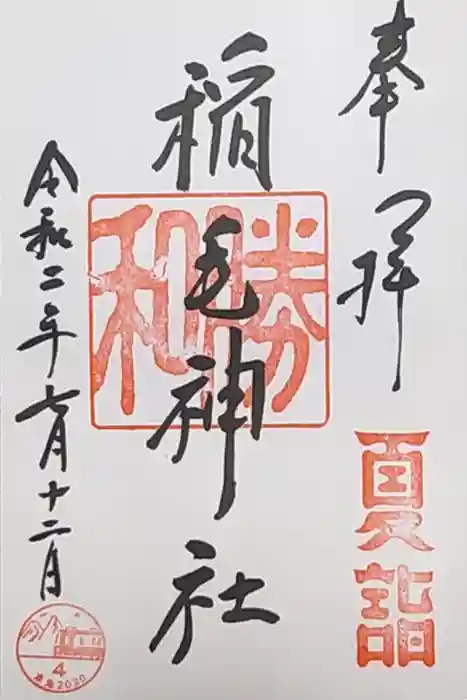 奉拝
夏詣
稲毛神社
勝和
令和二年七月十二日
4
2020